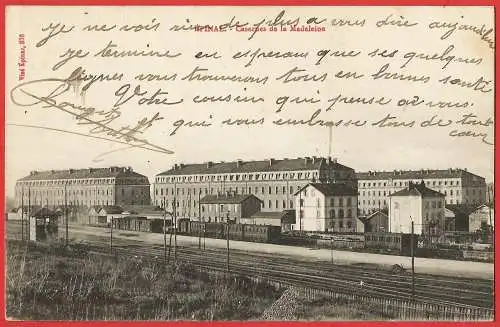 je ne vois rien de plus a vous dire aujourd'hui
EPINAL. - Casernes de la Madeleine
je termine en esperans que ses quelques
lignes vous trouverons tous en bonne santé
Votre cousin qui pense a vous.
et qui vous embrasse tous de tout
coeur
Visé Epinal, 370